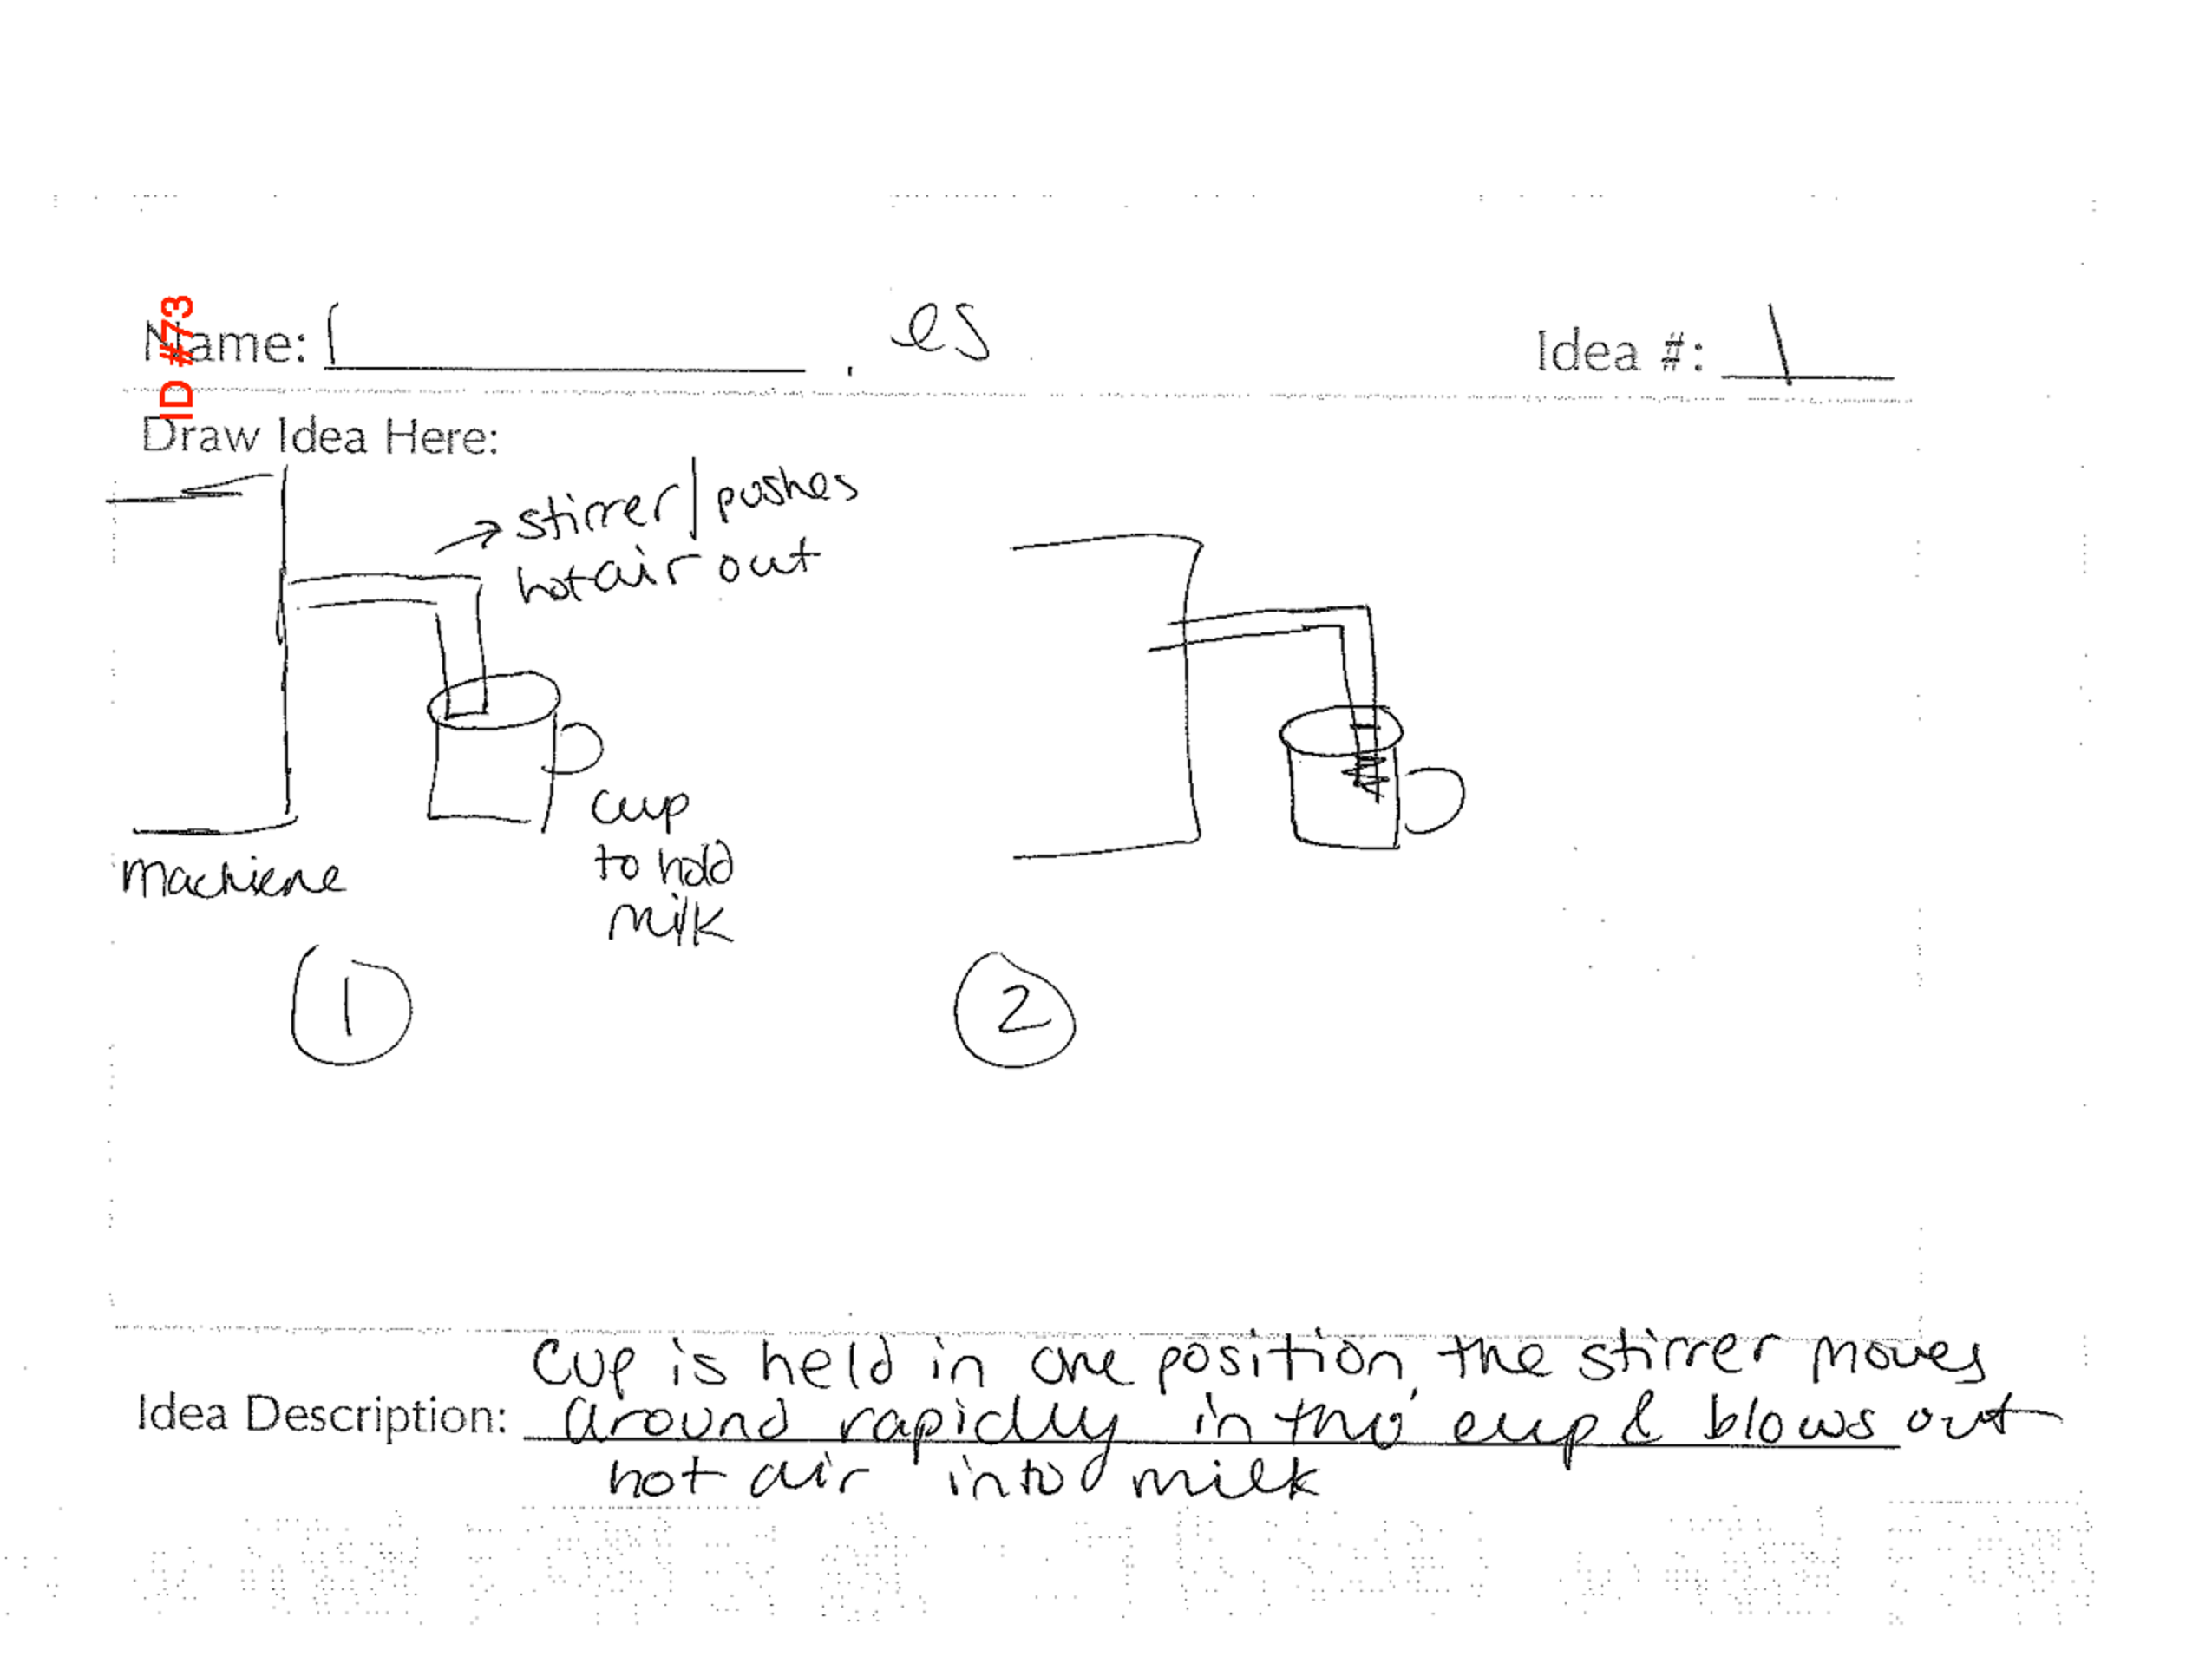 ID #73
Name: es
Idea #: 1
Draw Idea Here:
stirrer/pushes
hot air out
cup
to hold
milk
machiene
1
2
Cup is held in one position, the stirrer moves
Idea Description: around rapidly in the cup & blows out
hot air into milk